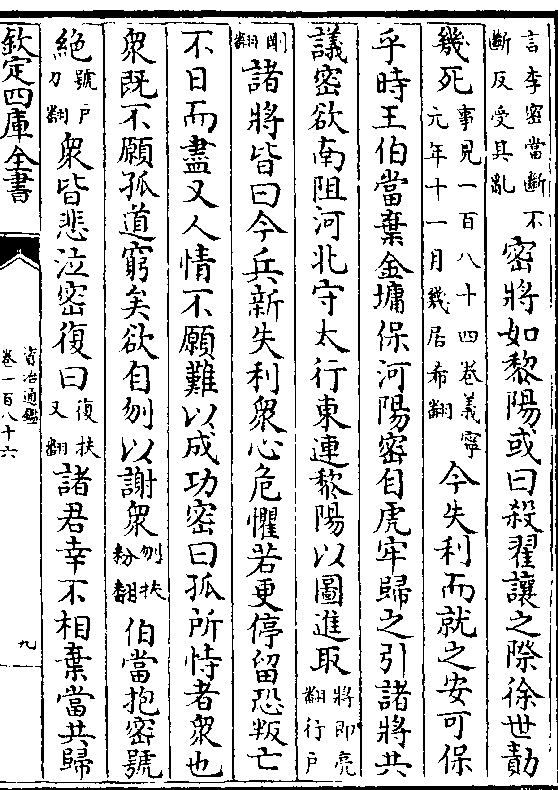 言李密當斷不
斷反受其亂
密將如黎陽或曰殺翟讓之際徐世勣
幾死
事見一百八十四卷義寧
元年十一月幾居希翻
今失利而就之安可保
乎時王伯當棄金墉保河陽密自虎牢歸之引諸將共
議密欲南阻河北守太行東連黎陽以圖進取
將即亮
翻行戶
剛
翻
諸將皆曰今兵新失利衆心危懼若更停留恐叛亡
不日而盡又人情不願難以成功密曰孤所恃者衆也
衆既不願孤道窮矣欲自刎以謝衆
刎扶
粉翻
伯當抱密號
絶
號戶
刀翻
衆皆悲泣密復曰
復扶
又翻
諸君幸不相棄當共歸
欽定四庫全書
資治通鑑
卷一百八十六
九